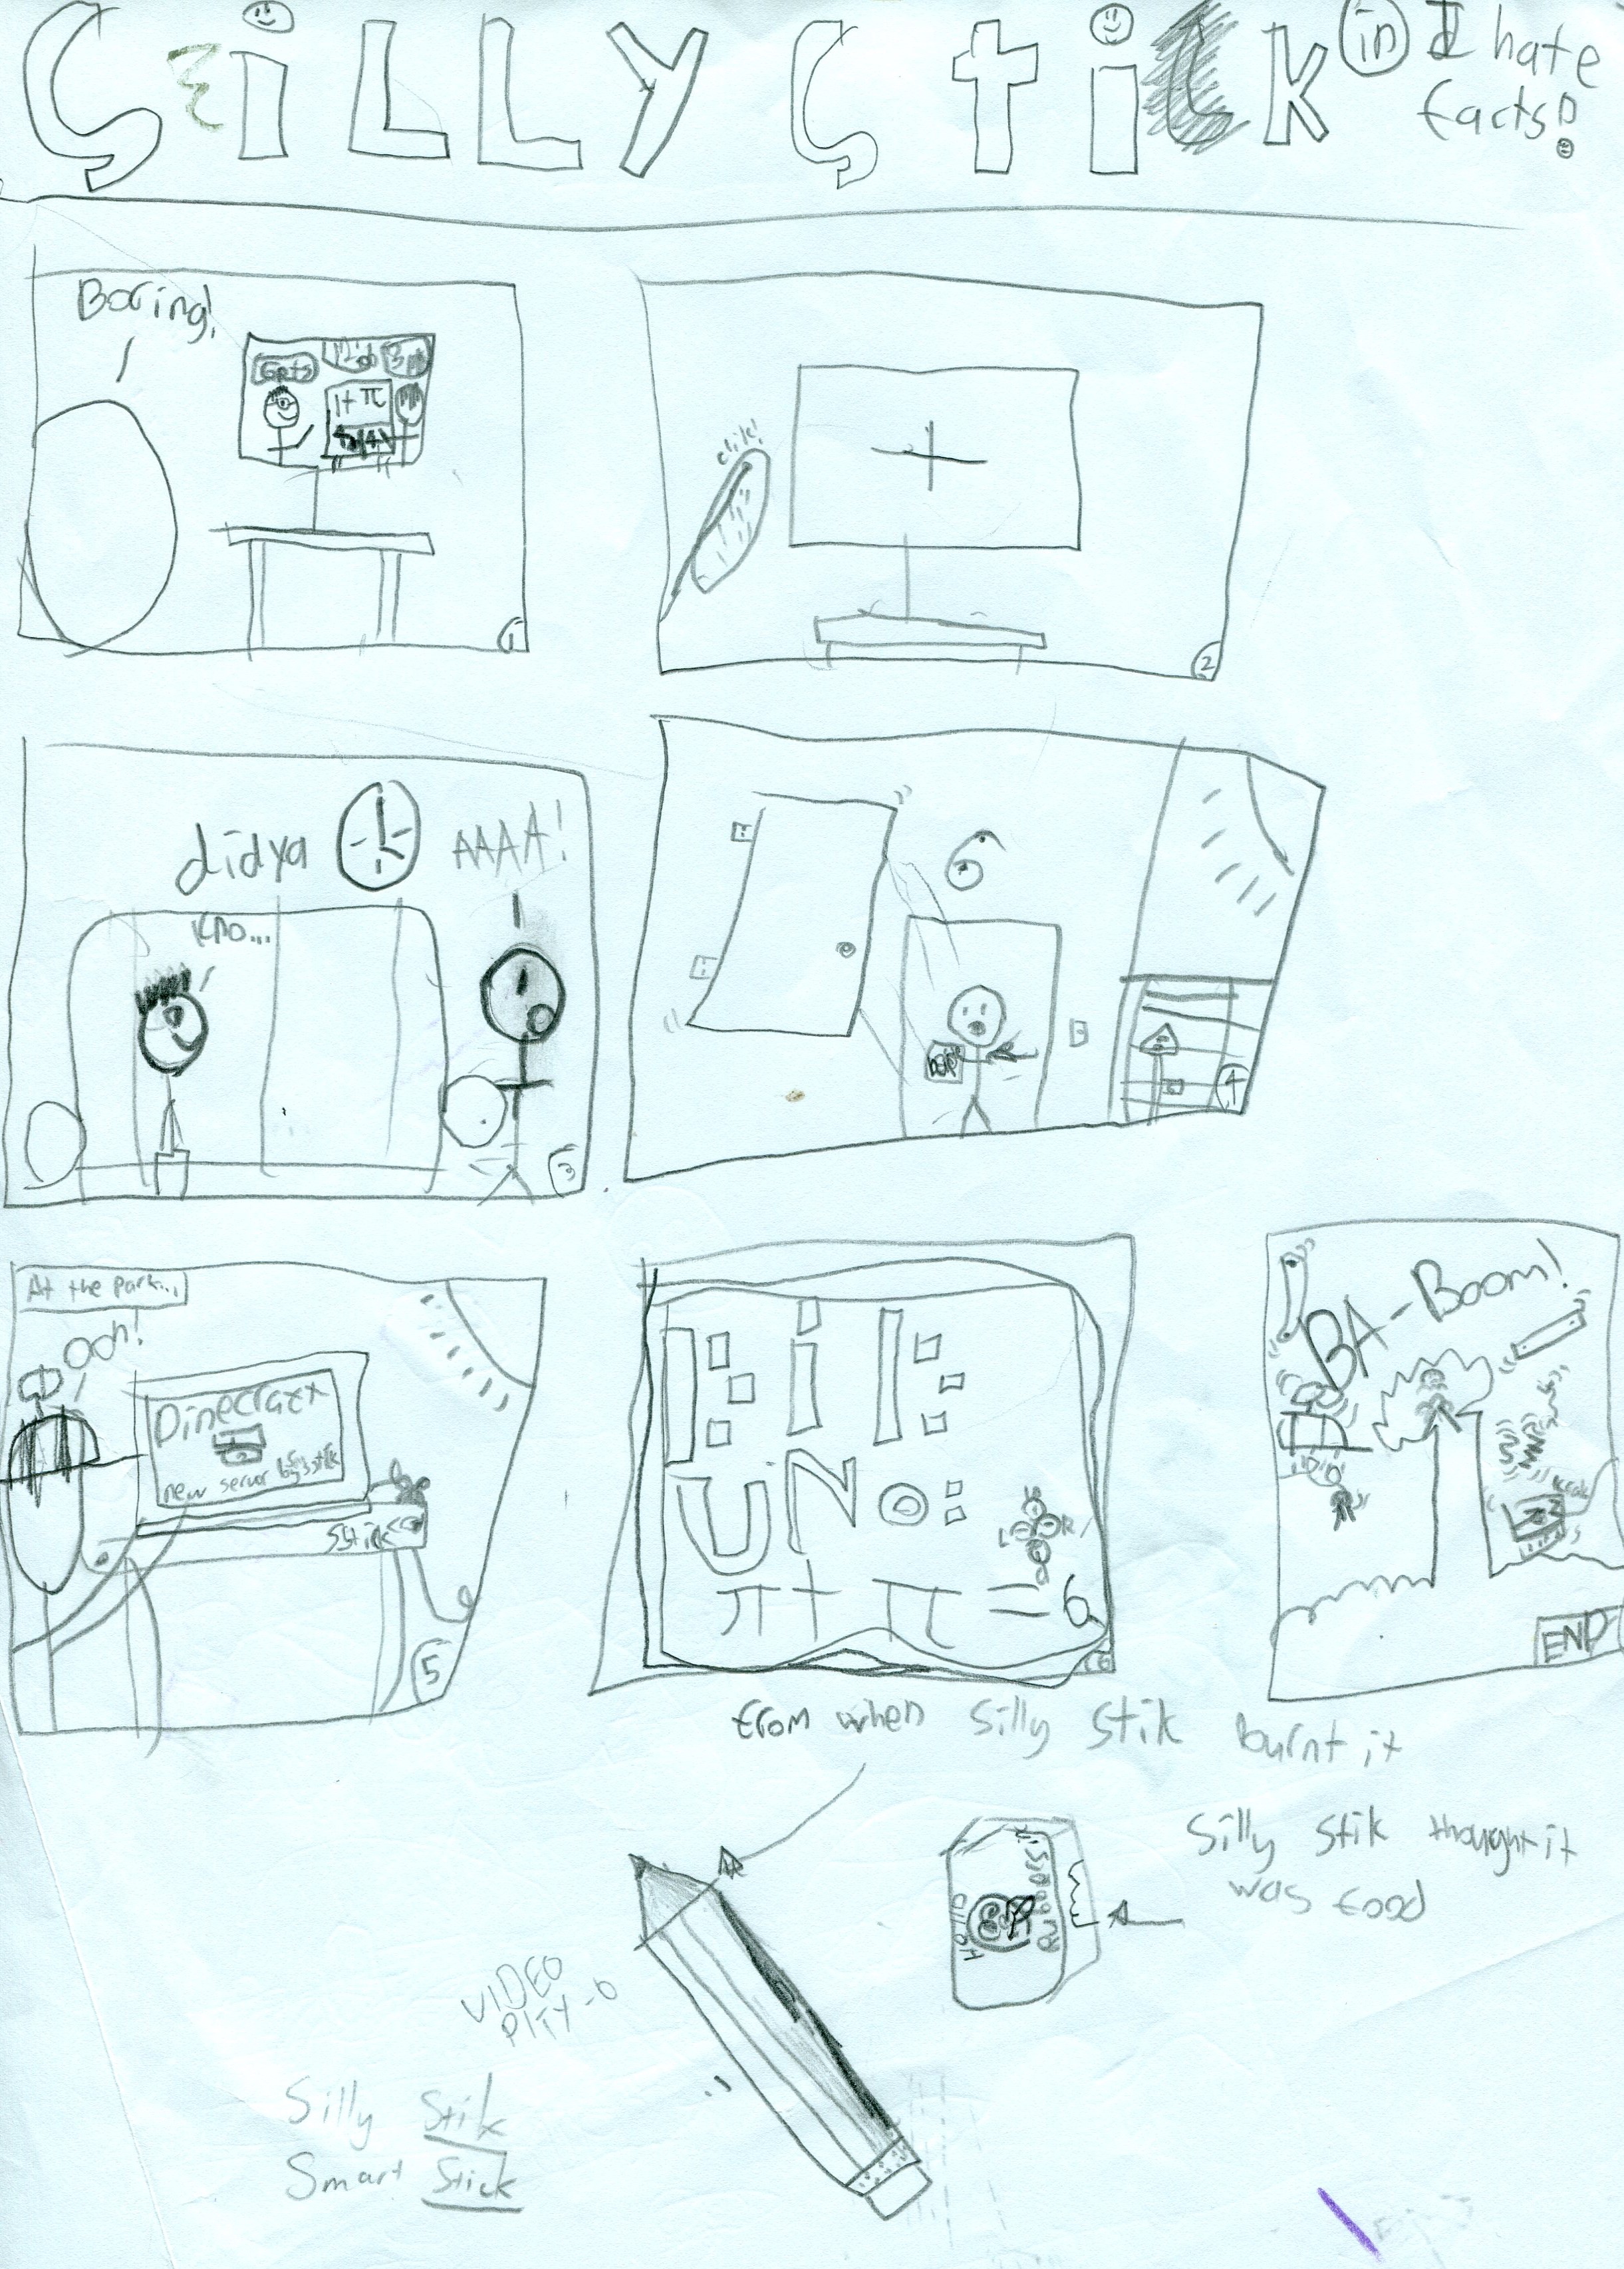 SiLLY StiK in I hate
facts!
Boring!
6pts
3pt
1+π
clik!
1
2
didya
AAAA!
Kno...
3
6
4
At the park...
Ooh!
Dinecraft
new server by sstik
SStik
5
UNO:
π+π=6
6
BA-BOOM!
END
from when Silly Stik burnt it
Silly Stik thought it
was food
VIDEO
PITY-O
Silly Stik
Smart Stick